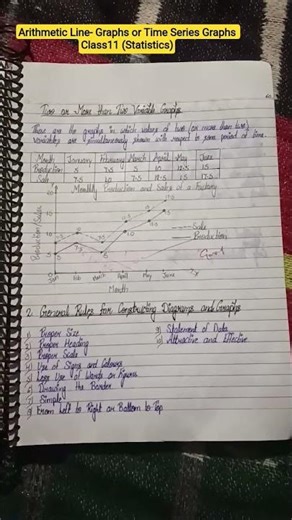 Arithmetic Line- Graphs or Time Series Graphs
Class11 (Statistics)
Two or More than Two Variable Graphs
These are the graphs in which values of two (or more than two)
variables are simultaneously shown with respect to same period of time.
Month January February March April May June
Production 5 7.5 5 10 12.5 15
Sale 7.5 10 7.5 12.5 15 17.5
Monthly Production and Sales of a Factory
Sale
Production
Jan Feb April May June
Month
2. General Rules for Constructing Diagrams and Graphs
1) Proper Size
2) Proper Heading
3) Proper Scale
4) Use of Signs and Colours
5) Less Use of Words or Figures
6) Drawing the Border
7) Simple
8) From Left to Right or Bottom to Top
9) Statement of Data
10) Attractive and Effective